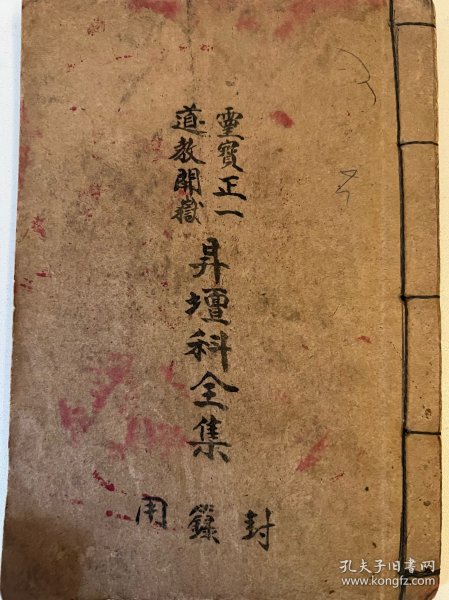 靈寶正一
道教開嶽
昇壇科全集
封籙用
孔夫子旧书网
www.kongfz.com